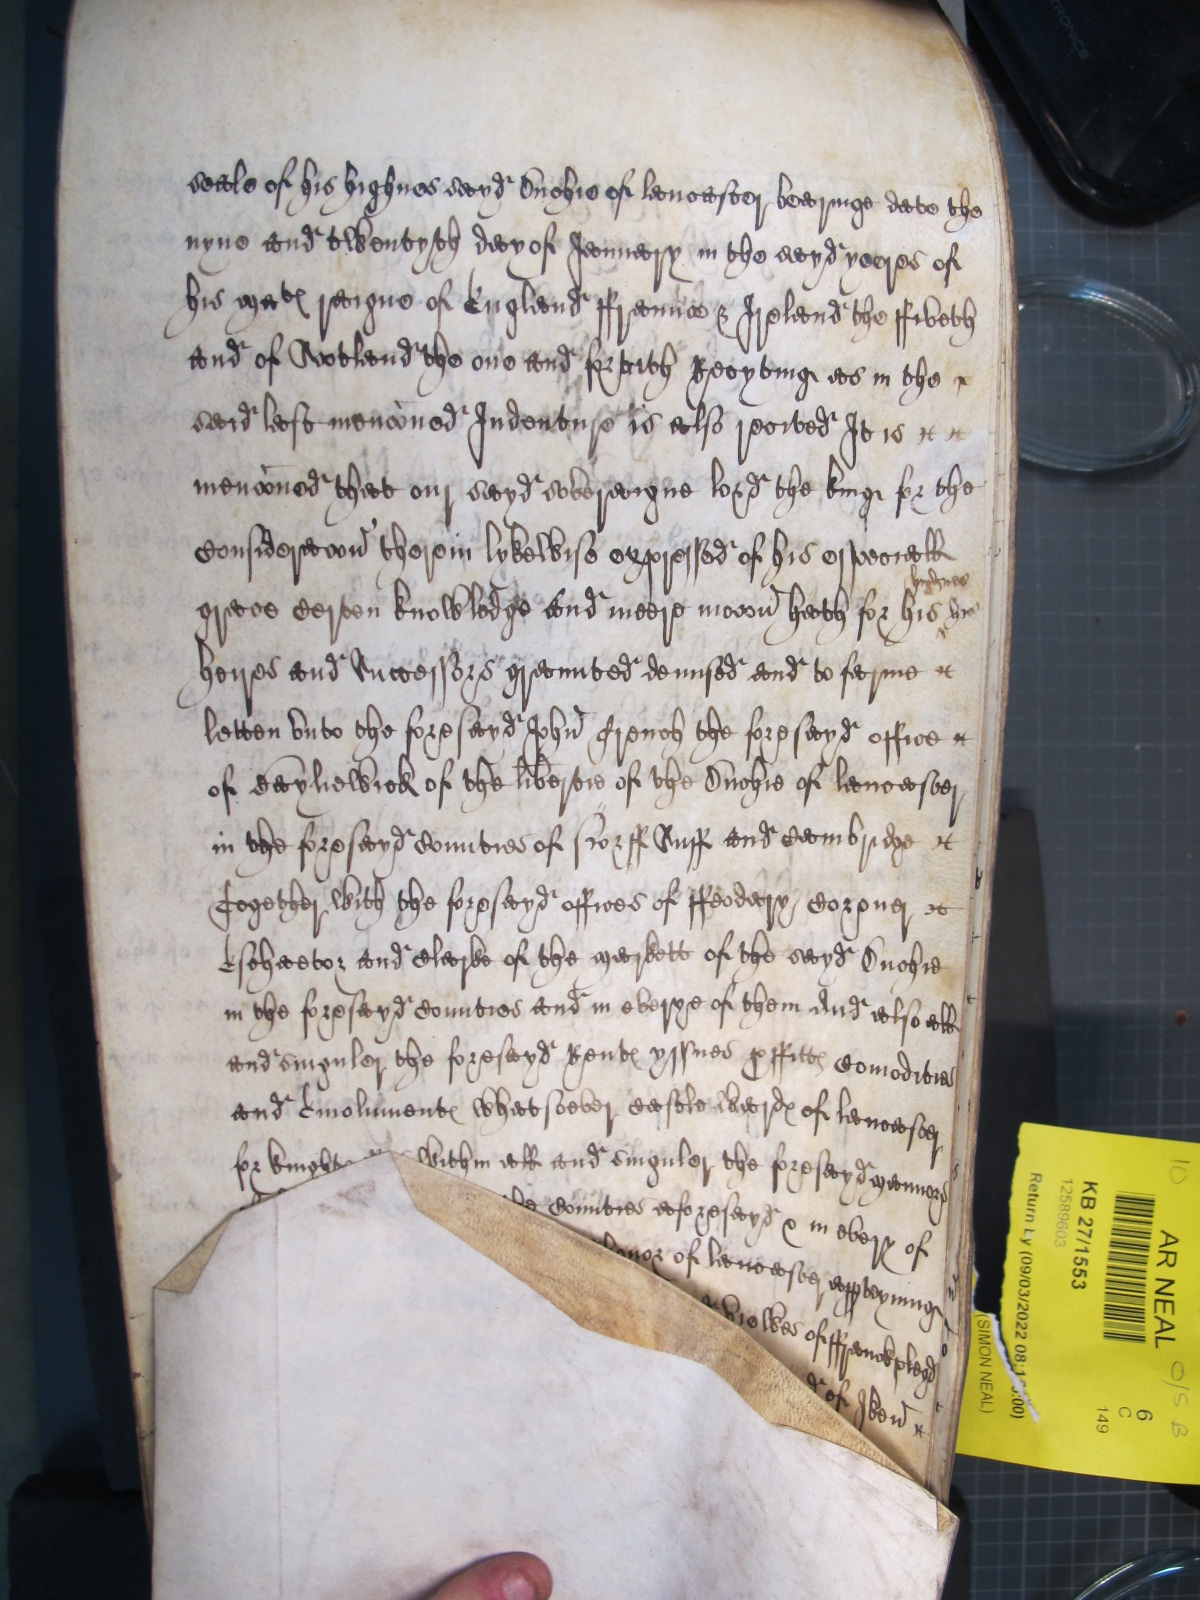 seale of his highnes sayd Duchie of lancaster bearinge date the
nyne and twentyth day of January in the sayd yeere of
his Mats raigne of England ffraunce & Ireland the ffiveth
and of Scotland the one and fortith Recyting as in the
said last menconed Indenture is also recited It is
menconed that our sayd soveraigne lord the king for the
consideracoun therein lykewise expressed of his especiall
grace certen knowledge and meere mocoun hath for his highnes his
heires and Successors graunted demised and to farme
letten unto the foresayd John ffrench the foresayd office
of Baylierwick of the libertie of the Duchie of lancaster
in the foresayd Counties of Norff Suff and Cambridge
Together with the foresayd offices of ffeodary Coroner
Escheator and Clarke of the Markett of the sayd Duchie
in the foresayd Counties and in everye of them And also all
and singuler the foresayd Rents yssues pffitts Comodities
and Emoluments whatsoever Castle wards of lancaster
for knights within all and singuler the foresayd Mannors
Counties aforesayd & in every of
honor of lancaster apptayning
viewes of ffranckpledg
of Iken
TRONICS
AR NEAL
KB 27/1553
12589603
Return Ly (09/03/2022 08:1
:00)
(SIMON NEAL)
6
C
149
10
O/S B